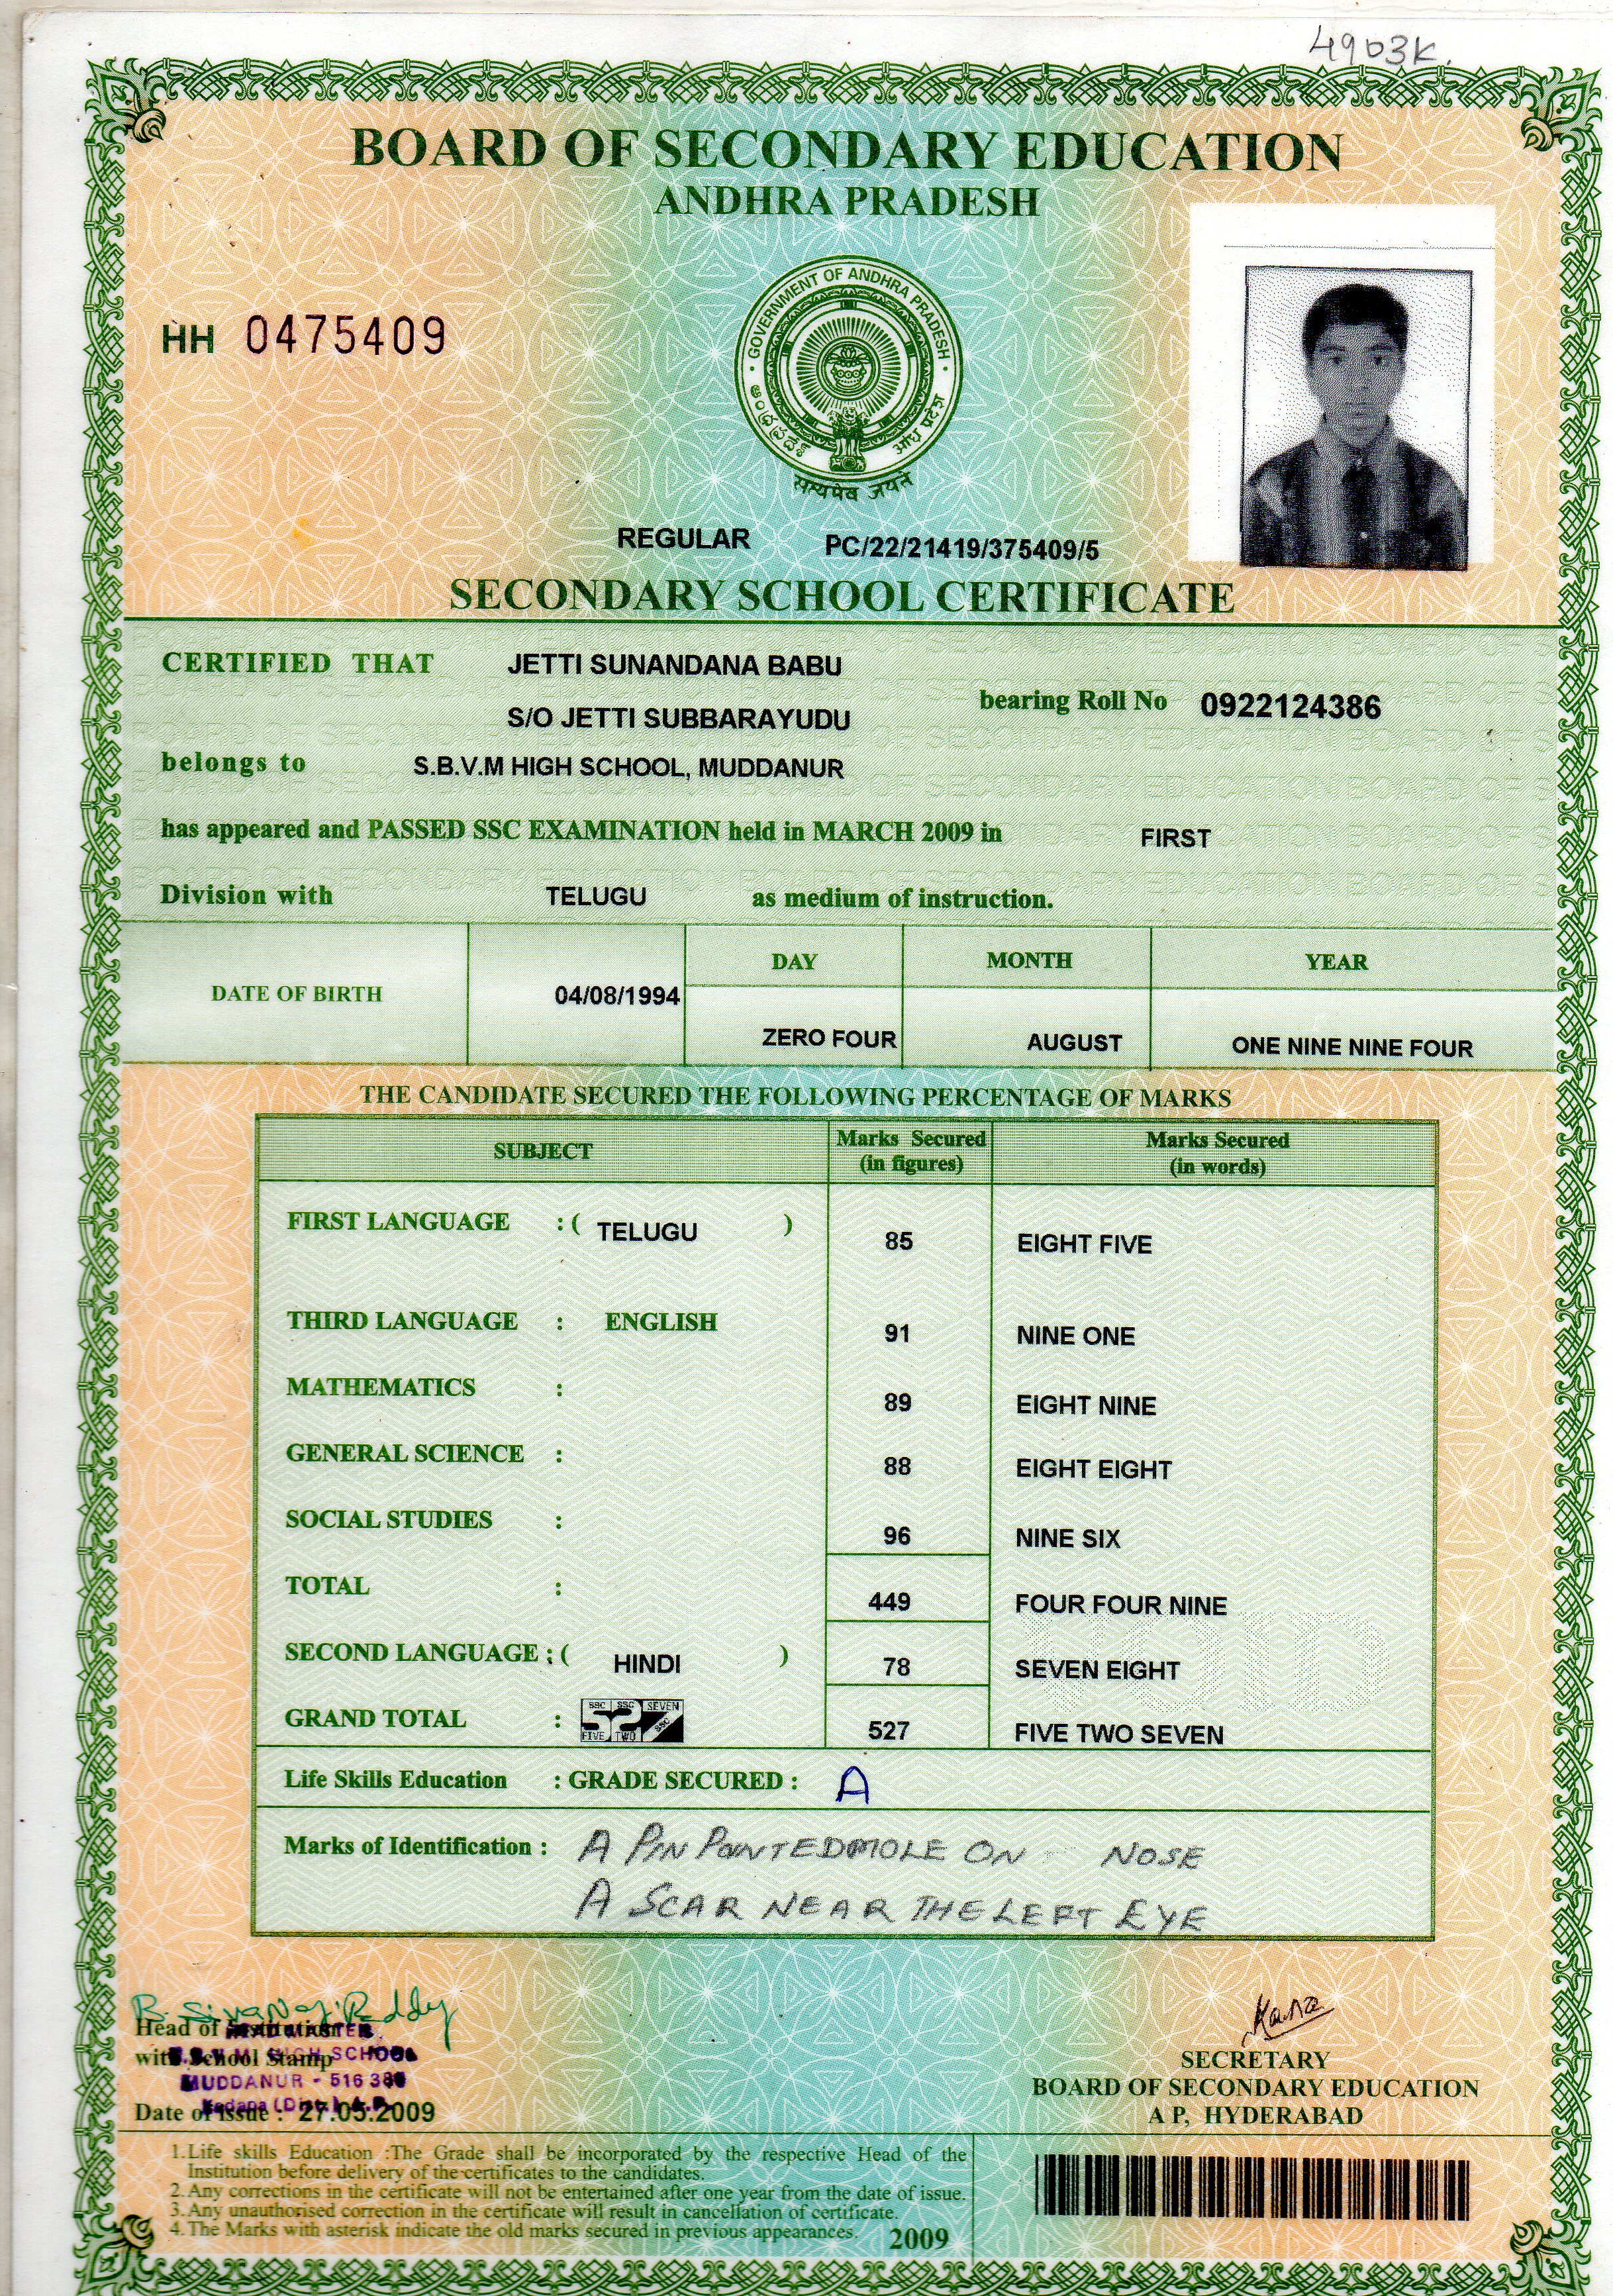 4903K.
BOARD OF SECONDARY EDUCATION
ANDHRA PRADESH
GOVERNMENT OF ANDHRA PRADESH
ఆంధ్రప్రదేశ్
आंध्र प्रदेश
सत्यमेव जयते
HH 0475409
REGULAR PC/22/21419/375409/5
SECONDARY SCHOOL CERTIFICATE
CERTIFIED THAT JETTI SUNANDANA BABU
S/O JETTI SUBBARAYUDU bearing Roll No 0922124386
belongs to S.B.V.M HIGH SCHOOL, MUDDANUR
has appeared and PASSED SSC EXAMINATION held in MARCH 2009 in FIRST
Division with TELUGU as medium of instruction.
DAY MONTH YEAR
DATE OF BIRTH 04/08/1994
ZERO FOUR AUGUST ONE NINE NINE FOUR
THE CANDIDATE SECURED THE FOLLOWING PERCENTAGE OF MARKS
SUBJECT Marks Secured (in figures) Marks Secured (in words)
FIRST LANGUAGE : ( TELUGU ) 85 EIGHT FIVE
THIRD LANGUAGE : ENGLISH 91 NINE ONE
MATHEMATICS : 89 EIGHT NINE
GENERAL SCIENCE : 88 EIGHT EIGHT
SOCIAL STUDIES : 96 NINE SIX
TOTAL : 449 FOUR FOUR NINE
VOID
SECOND LANGUAGE : ( HINDI ) 78 SEVEN EIGHT
SSC SSC SEVEN
GRAND TOTAL : 52 SSC 527 FIVE TWO SEVEN
FIVE TWO
Life Skills Education : GRADE SECURED : A
Marks of Identification : A PIN POINTEDMOLE ON NOSE
A SCAR NEAR THE LEFT EYE
B. Siva Nag. Reddy
Head of Institution
HEAD MASTER
with School Stamp
S.B.V.M. HIGH SCHOOL
MUDDANUR - 516 380
Kadapa (Dist.) A.P.
Date of Issue : 27.05.2009
SECRETARY
BOARD OF SECONDARY EDUCATION
A P, HYDERABAD
1. Life skills Education :The Grade shall be incorporated by the respective Head of the
Institution before delivery of the certificates to the candidates.
2. Any corrections in the certificate will not be entertained after one year from the date of issue.
3. Any unauthorised correction in the certificate will result in cancellation of certificate.
4. The Marks with asterisk indicate the old marks secured in previous appearances. 2009